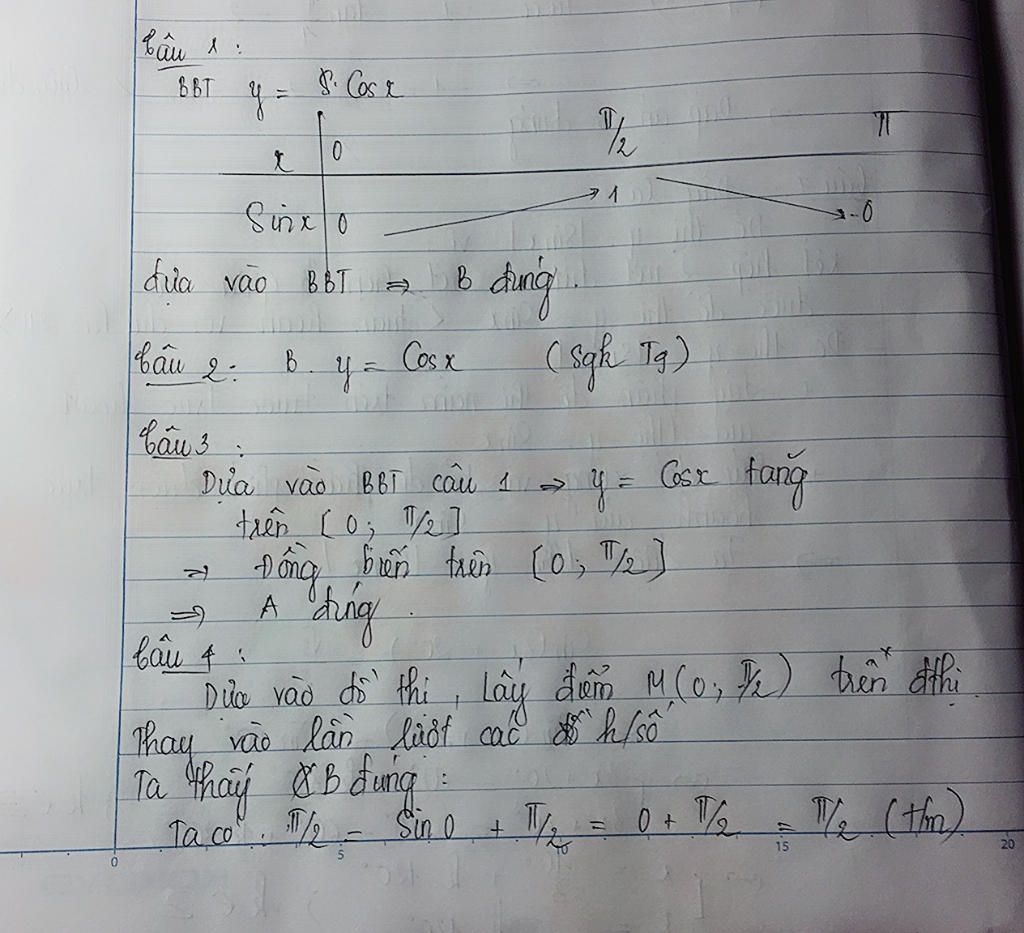 Câu 1:
BBT y = Cosx
x 0 π/2 π
Sinx 0 1 0
dựa vào BBT ⇒ B đúng.
Câu 2: B. y = Cosx (Sgk Tg)
Câu 3:
Dựa vào BBT câu 1 ⇒ y = Cosx tăng
trên [0; π/2]
⇒ Đồng biến trên [0; π/2]
⇒ A đúng.
Câu 4:
Dựa vào đồ thi, lấy điểm M(0; π/2) trên đthị.
Thay vào lần lượt các h/số
Ta thấy B đúng:
Ta có: π/2 = Sin 0 + π/2 = 0 + π/2 = π/2 (t/m)
0 5 10 15 20